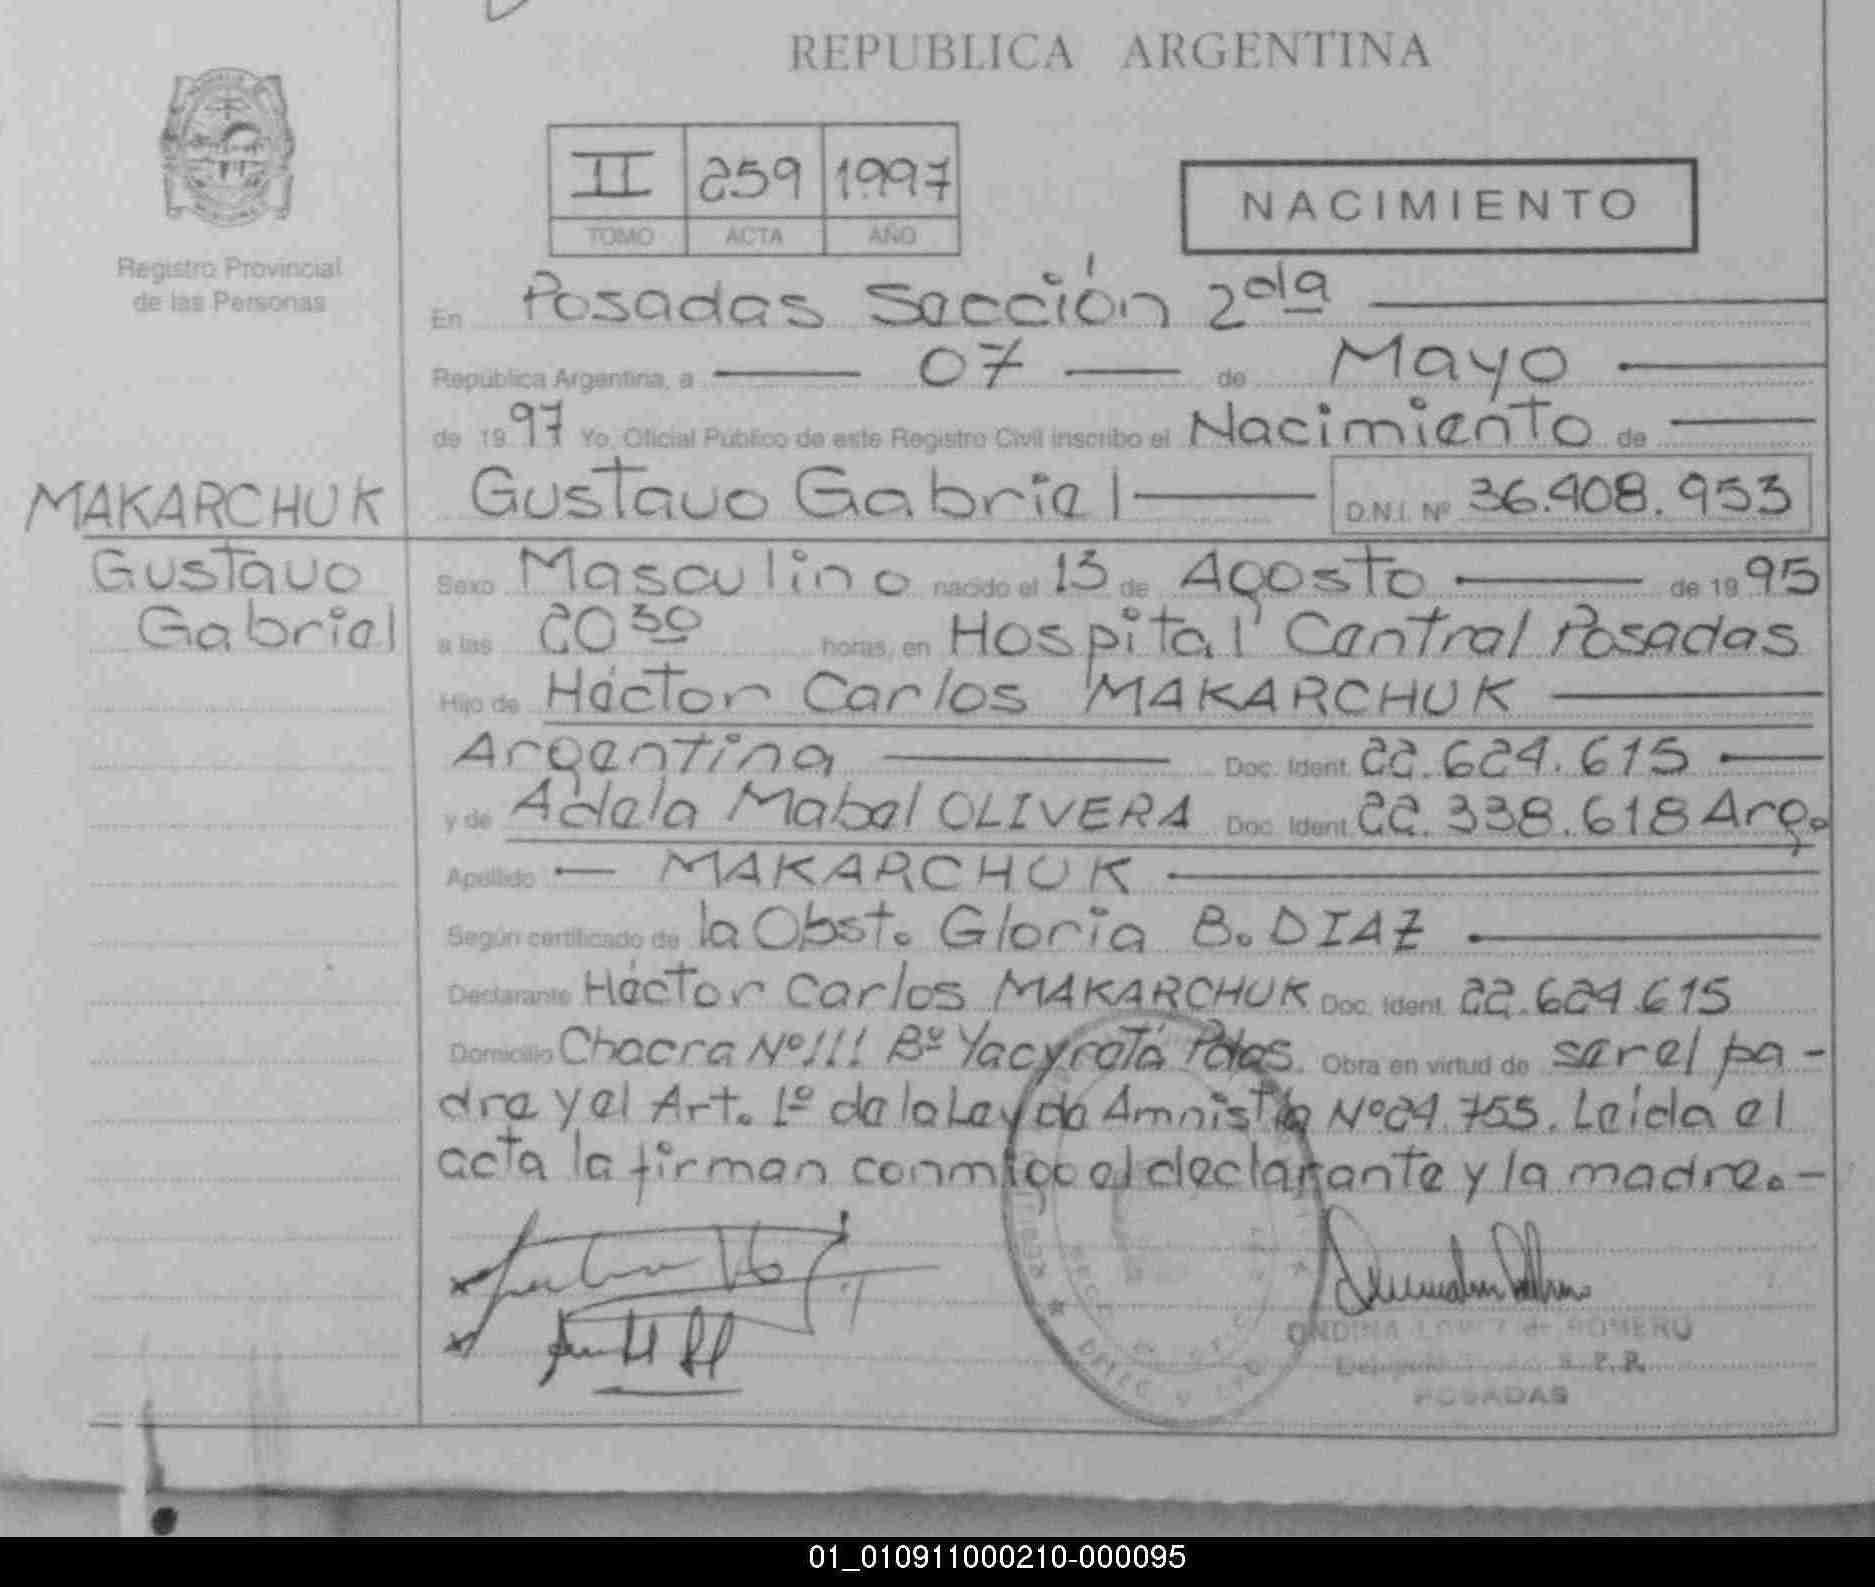 REPUBLICA ARGENTINA
II 259 1997
TOMO ACTA AÑO
NACIMIENTO
Registro Provincial
de las Personas
En Posadas Sección 2da
República Argentina, a 07 de Mayo
de 1997 Yo, Oficial Público de este Registro Civil inscribo el Nacimiento de
MAKARCHUK
Gustavo
Gabriel
Gustavo Gabriel D.N.I. Nº 36.408.953
Sexo Masculino nacido el 13 de Agosto de 1995
a las 20 30 horas, en Hospital Central Posadas
Hijo de Héctor Carlos MAKARCHUK
Argentina Doc. Ident. 22.624.615
y de Adela Mabel OLIVERA Doc. Ident. 22.338.618 Arg.
Apellido MAKARCHUK
Según certificado de la Obst. Gloria B. DIAZ
Declarante Héctor Carlos MAKARCHUK Doc. Ident. 22.624.615
Domicilio Chacra Nº 111 Bº Yacyretá Pdas. Obra en virtud de ser el pa-
dre y el Art. 1º de la Ley de Amnistía Nº 24.755. Leída el
acta la firman conmigo el declarante y la madre.-
ONDINA LOPEZ de ROMERO
POSADAS
01_010911000210-000095